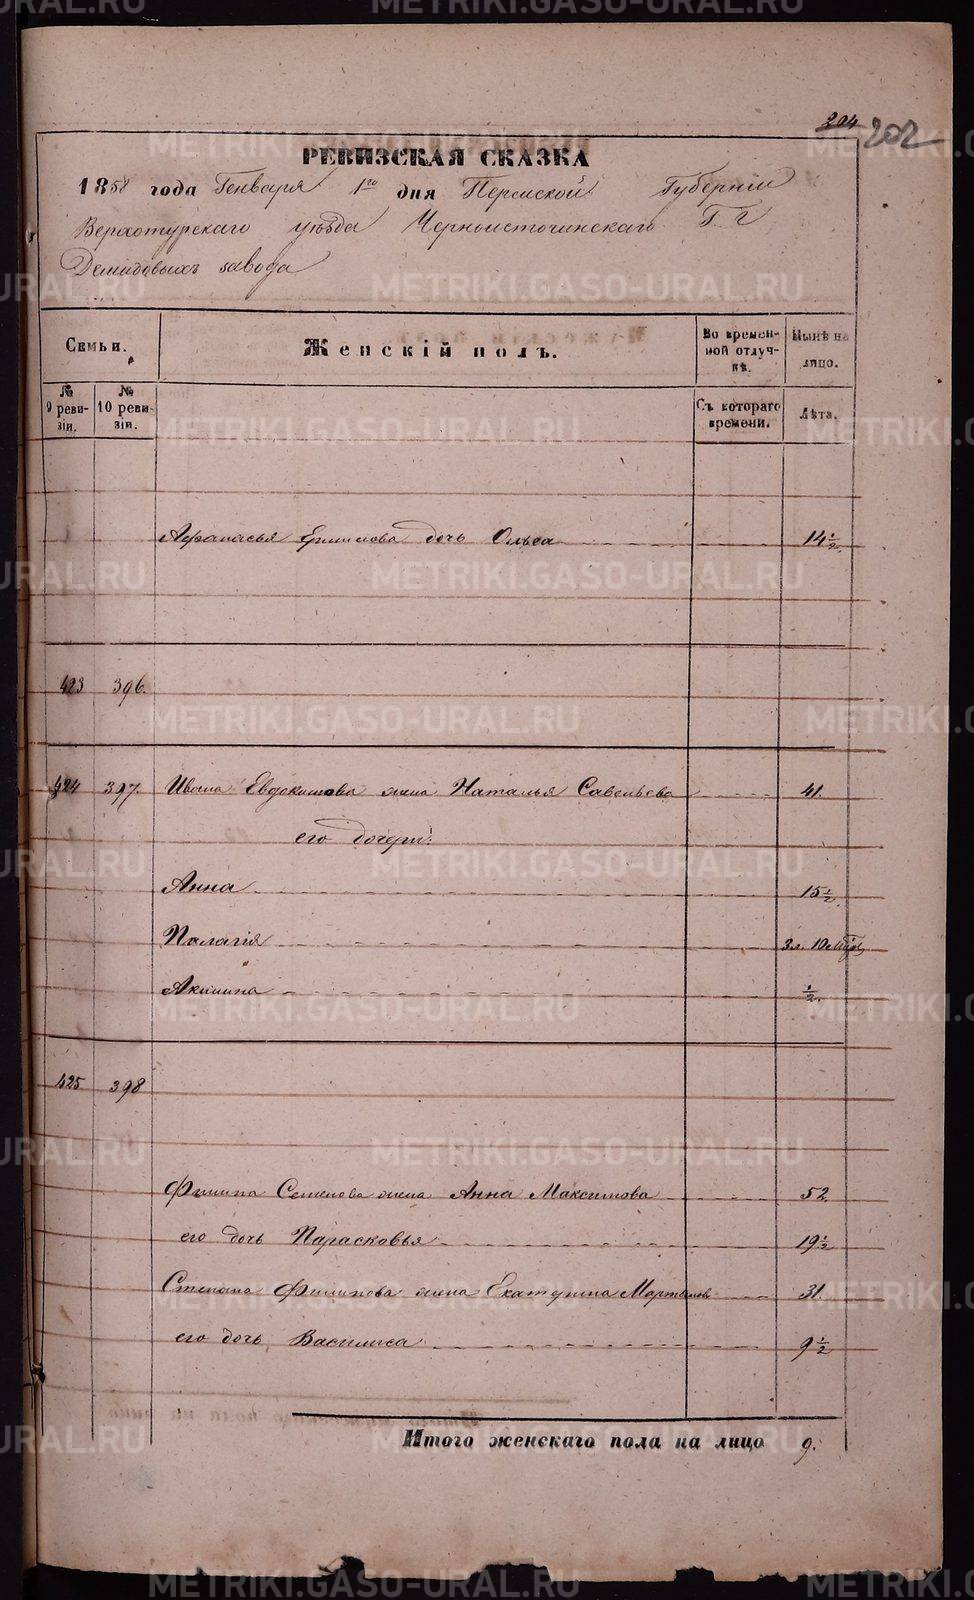 204 202
РЕВИЗСКАЯ СКАЗКА
1858 года Генваря 1го дня Пермской Губернiи
Верхотурскаго уѣзда Черноисточинскаго Г. Г.
Демидовыхъ завода
Семьи.
Женскій полъ.
Во времен-
ной отлуч-
кѣ.
Нынѣ на
лицо.
№
9 реви-
зіи.
№
10 реви-
зіи.
Съ котораго
времени.
Лѣта.
Афанасья Ермилова дочь Ольга 14 1/2
423 396.
424 397. Ивана Евдокимова жена Наталья Савельева 41.
его дочери:
Анна 15 1/2
Палагія 3 л. 10
Акилина 1/2.
425 398
Филипа Семенова жена Анна Максимова 52.
его дочь Парасковья 19 1/2
Степана Филипова жена Екатерина 31.
его дочь Василиса 9 1/2
Итого женскаго пола на лицо 9.
METRIKI.GASO-URAL.RU